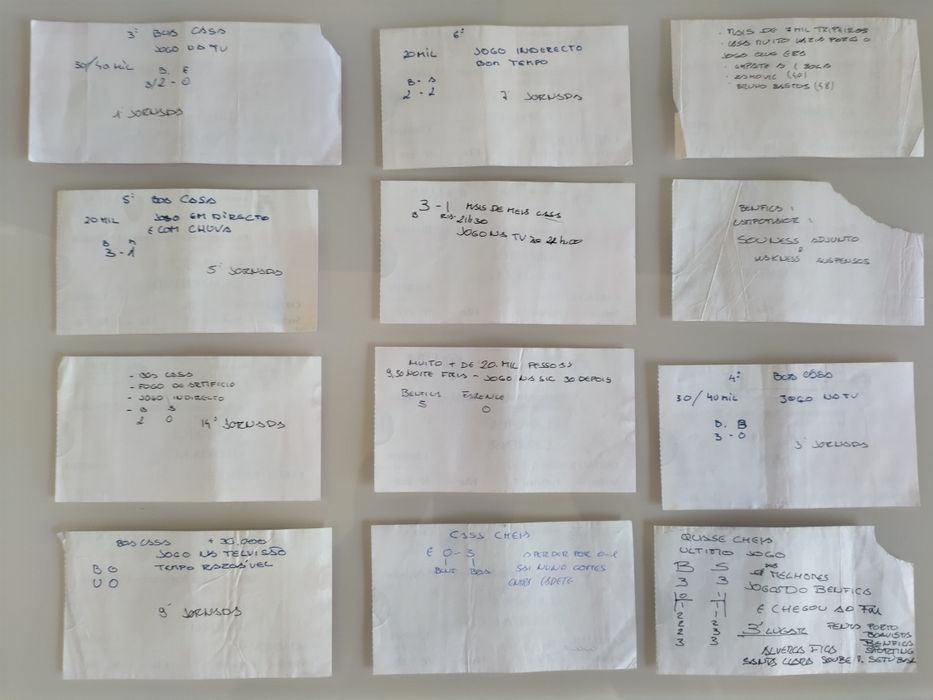 3ª BOA CASA
JOGO NA TV
30/40 MIL B. E
3/2 - 0
1ª JORNADA
6ª
20 MIL JOGO INDERECTO
BOM TEMPO
B - A
2 - 2 7ª JORNADA
- MAIS DE 7 MIL TRIPEIROS
- CASA MUITO VAZIA PARA O
JOGO QUE ERA
- EMPATE A 1 BOLA
- ZAHOVIC (40)
- BRUNO BASTOS (48)
5ª BOA CASA
20 MIL JOGO EM DIRECTO
E COM CHUVA
B A
3 - 1
5ª JORNADA
3 - 1 MAIS DE MEIA CASA
B 21H30
JOGO NA TV
BENFICA :
CAMPOMAIOR :
SOUNESS ADJUNTO
SUSPENSOS
- BOA CASA
- FOGO DE ARTIFICIO
- JOGO INDIRECTO
- B S
2 0 14ª JORNADA
MUITO + DE 20. MIL PESSOAS
9,30 NOITE FRIA - JOGO NA SIC 30 DEPOIS
BENFICA
5 0
4ª BOA CASA
30/40 MIL JOGO NA TV
B. B
3 - 0
3ª JORNADA
BOA CASA + 30.000
JOGO NA TELVISÃO
B G TEMPO RAZOÁVEL
U O
9ª JORNADA
CASA CHEIA
E 0 - 3 A PERDER POR 0-2
BENF BOA SAI NUNO GOMES
QUASSE CHEIA
ULTIMO JOGO
B S DOS
3 3 MELHORES
0 1 JOGOS DO BENFICA
1 1
1 1 E CHEGOU AO FIM
2 1
2 2 3º LUGAR PENTA PORTO
2 3 BOAVISTA
3 3 BENFICA
ALVERCA FICA SPORTING
SANTA CLARA SOUBE V. SETUBAL